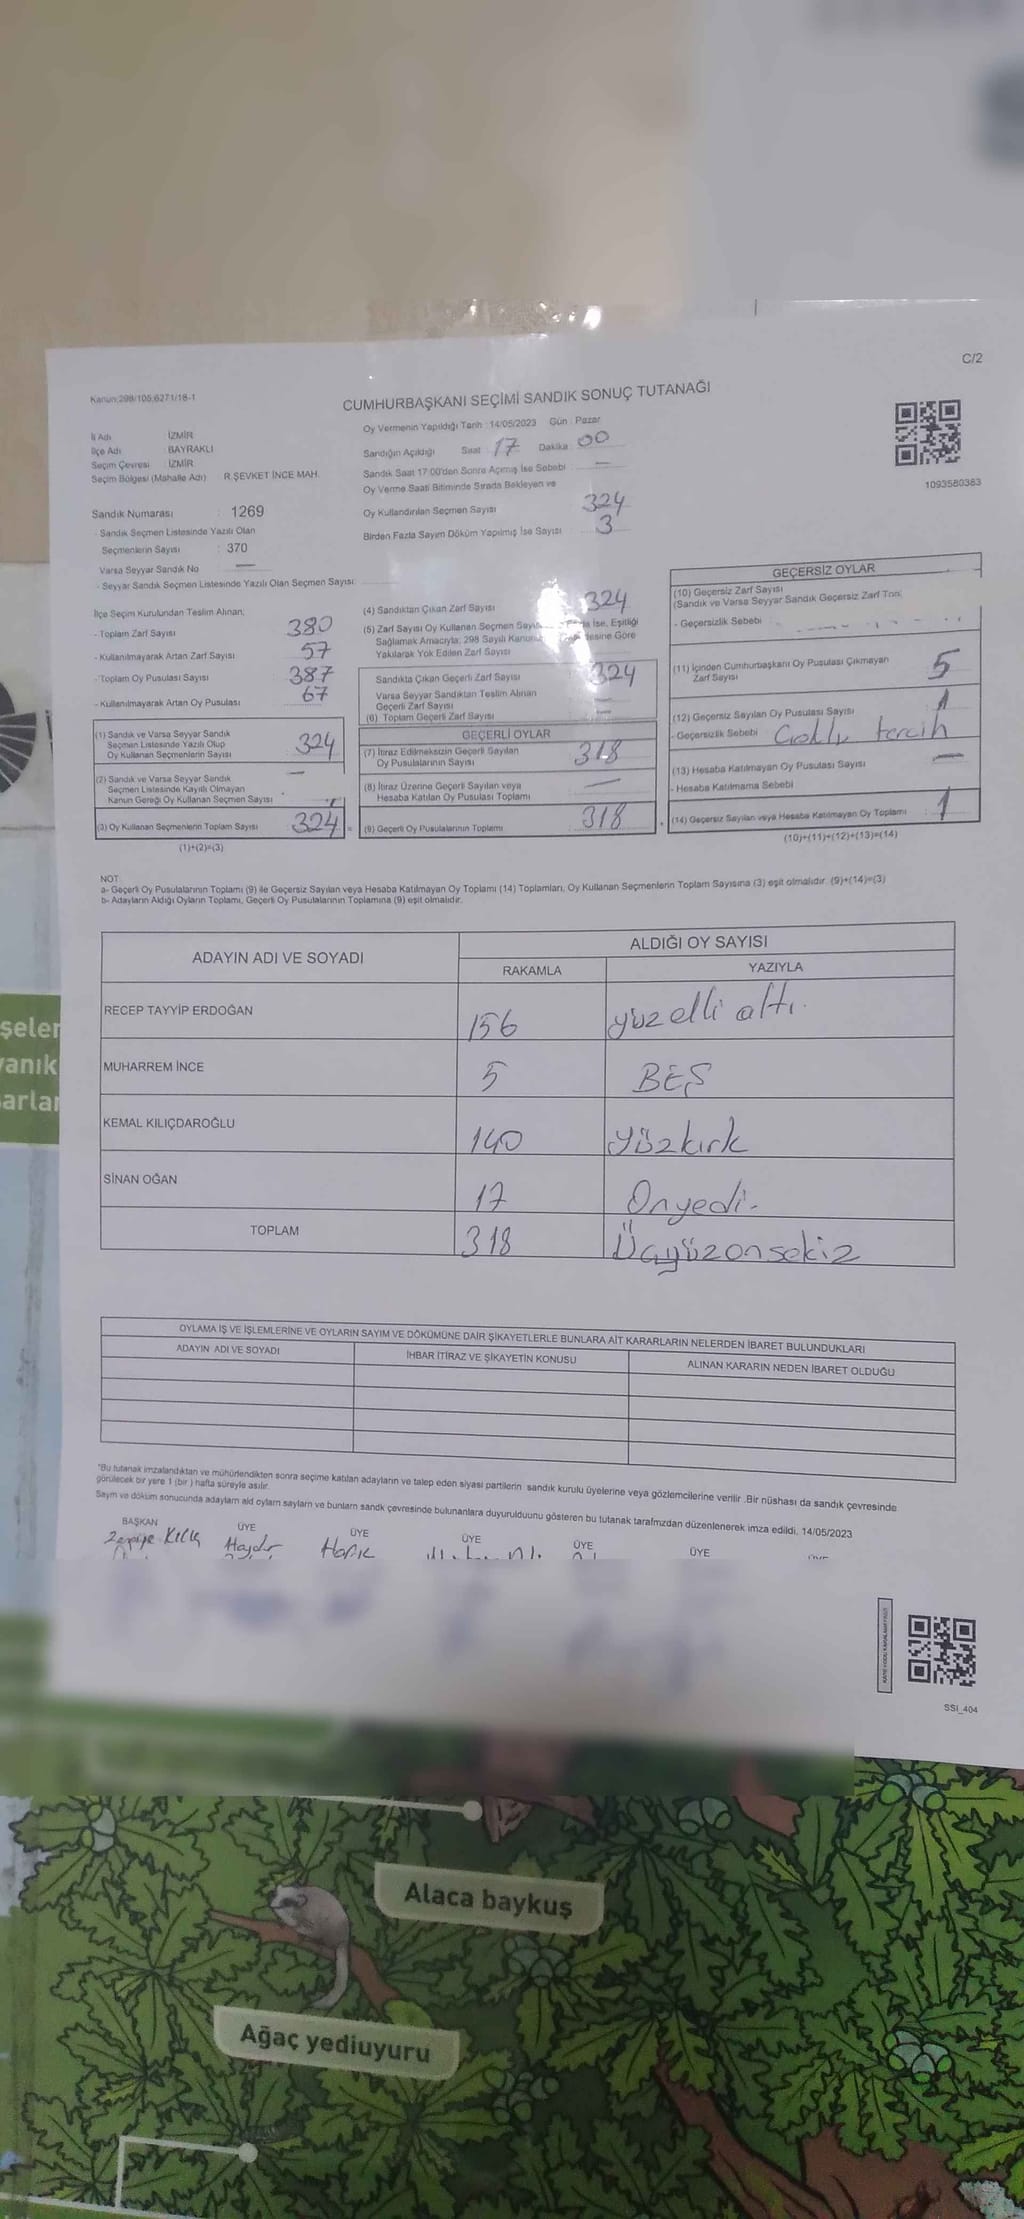 C/2
Kanun;298/105;6271/18-1
CUMHURBAŞKANI SEÇİMİ SANDIK SONUÇ TUTANAĞI
İl Adı İZMİR
İlçe Adı BAYRAKLI
Seçim Çevresi : İZMİR
Seçim Bölgesi (Mahalle Adı) : R.ŞEVKET İNCE MAH.
Oy Vermenin Yapıldığı Tarih : 14/05/2023 Gün : Pazar
Sandığın Açıldığı Saat : 17 Dakika : 00
Sandık Saat 17:00'den Sonra Açımış İse Sebebi —
Oy Verme Saati Bitiminde Sırada Bekleyen ve
Oy Kullandırılan Seçmen Sayısı 324
Birden Fazla Sayım Döküm Yapılmış İse Sayısı 3
1093580383
Sandık Numarası : 1269
- Sandık Seçmen Listesinde Yazılı Olan
Seçmenlerin Sayısı : 370
Varsa Seyyar Sandık No —
- Seyyar Sandık Seçmen Listesinde Yazılı Olan Seçmen Sayısı
İlçe Seçim Kurulundan Teslim Alınan;
- Toplam Zarf Sayısı 380
- Kullanılmayarak Artan Zarf Sayısı 57
- Toplam Oy Pusulası Sayısı 387
- Kullanılmayarak Artan Oy Pusulası 67
(1) Sandık ve Varsa Seyyar Sandık
Seçmen Listesinde Yazılı Olup
Oy Kullanan Seçmenlerin Sayısı 324
(2) Sandık ve Varsa Seyyar Sandık
Seçmen Listesinde Kayıtlı Olmayan
Kanun Gereği Oy Kullanan Seçmen Sayısı —
(3) Oy Kullanan Seçmenlerin Toplam Sayısı 324
(1)+(2)=(3)
(4) Sandıktan Çıkan Zarf Sayısı 324
(5) Zarf Sayısı Oy Kullanan Seçmen İse, Eşitliği
Sağlamak Amacıyla; 298 Sayılı Göre
Yakılarak Yok Edilen Zarf Sayısı
Sandıkta Çıkan Geçerli Zarf Sayısı 324
Varsa Seyyar Sandıktan Teslim Alınan
Geçerli Zarf Sayısı —
(6) Toplam Geçerli Zarf Sayısı
GEÇERLİ OYLAR
(7) İtiraz Edilmeksizin Geçerli Sayılan
Oy Pusulalarının Sayısı 318
(8) İtiraz Üzerine Geçerli Sayılan veya
Hesaba Katılan Oy Pusulası Toplamı —
(9) Geçerli Oy Pusulalarının Toplamı 318
GEÇERSİZ OYLAR
(10) Geçersiz Zarf Sayısı
(Sandık ve Varsa Seyyar Sandık Geçersiz Zarf
- Geçersizlik Sebebi :
(11) İçinden Cumhurbaşkanı Oy Pusulası Çıkmayan
Zarf Sayısı 5
(12) Geçersiz Sayılan Oy Pusulası Sayısı 1
- Geçersizlik Sebebi Çoklu tercih
(13) Hesaba Katılmayan Oy Pusulası Sayısı —
- Hesaba Katılmama Sebebi
(14) Geçersiz Sayılan veya Hesaba Katılmayan Oy Toplamı 1
(10)+(11)+(12)+(13)=(14)
NOT:
a- Geçerli Oy Pusulalarının Toplamı (9) ile Geçersiz Sayılan veya Hesaba Katılmayan Oy Toplamı (14) Toplamları, Oy Kullanan Seçmenlerin Toplam Sayısına (3) eşit olmalıdır. (9)+(14)=(3)
b- Adayların Aldığı Oyların Toplamı, Geçerli Oy Pusulalarının Toplamına (9) eşit olmalıdır.
ADAYIN ADI VE SOYADI ALDIĞI OY SAYISI
RAKAMLA YAZIYLA
RECEP TAYYİP ERDOĞAN 156 yüzelli altı.
MUHARREM İNCE 5 BEŞ
KEMAL KILIÇDAROĞLU 140 yüzkırk
SİNAN OĞAN 17 Onyedi-
TOPLAM 318 Üçyüzonsekiz
OYLAMA İŞ VE İŞLEMLERİNE VE OYLARIN SAYIM VE DÖKÜMÜNE DAİR ŞİKAYETLERLE BUNLARA AİT KARARLARIN NELERDEN İBARET BULUNDUKLARI
ADAYIN ADI VE SOYADI İHBAR İTİRAZ VE ŞİKAYETİN KONUSU ALINAN KARARIN NEDEN İBARET OLDUĞU
"Bu tutanak imzalandıktan ve mühürlendikten sonra seçime katılan adayların ve talep eden siyasi partilerin sandık kurulu üyelerine veya gözlemcilerine verilir .Bir nüshası da sandık çevresinde
görülecek bir yere 1 (bir) hafta süreyle asılır.
Sayım ve döküm sonucunda adayların ald oyların sayların ve bunların sandk çevresinde bulunanlara duyurulduunu gösteren bu tutanak tarafmzdan düzenlenerek imza edildi. 14/05/2023
BAŞKAN ÜYE ÜYE ÜYE ÜYE ÜYE
Kılıç Haydar
SSI_404
şeler
yanık
arlar
Alaca baykuş
Ağaç yediuyuru